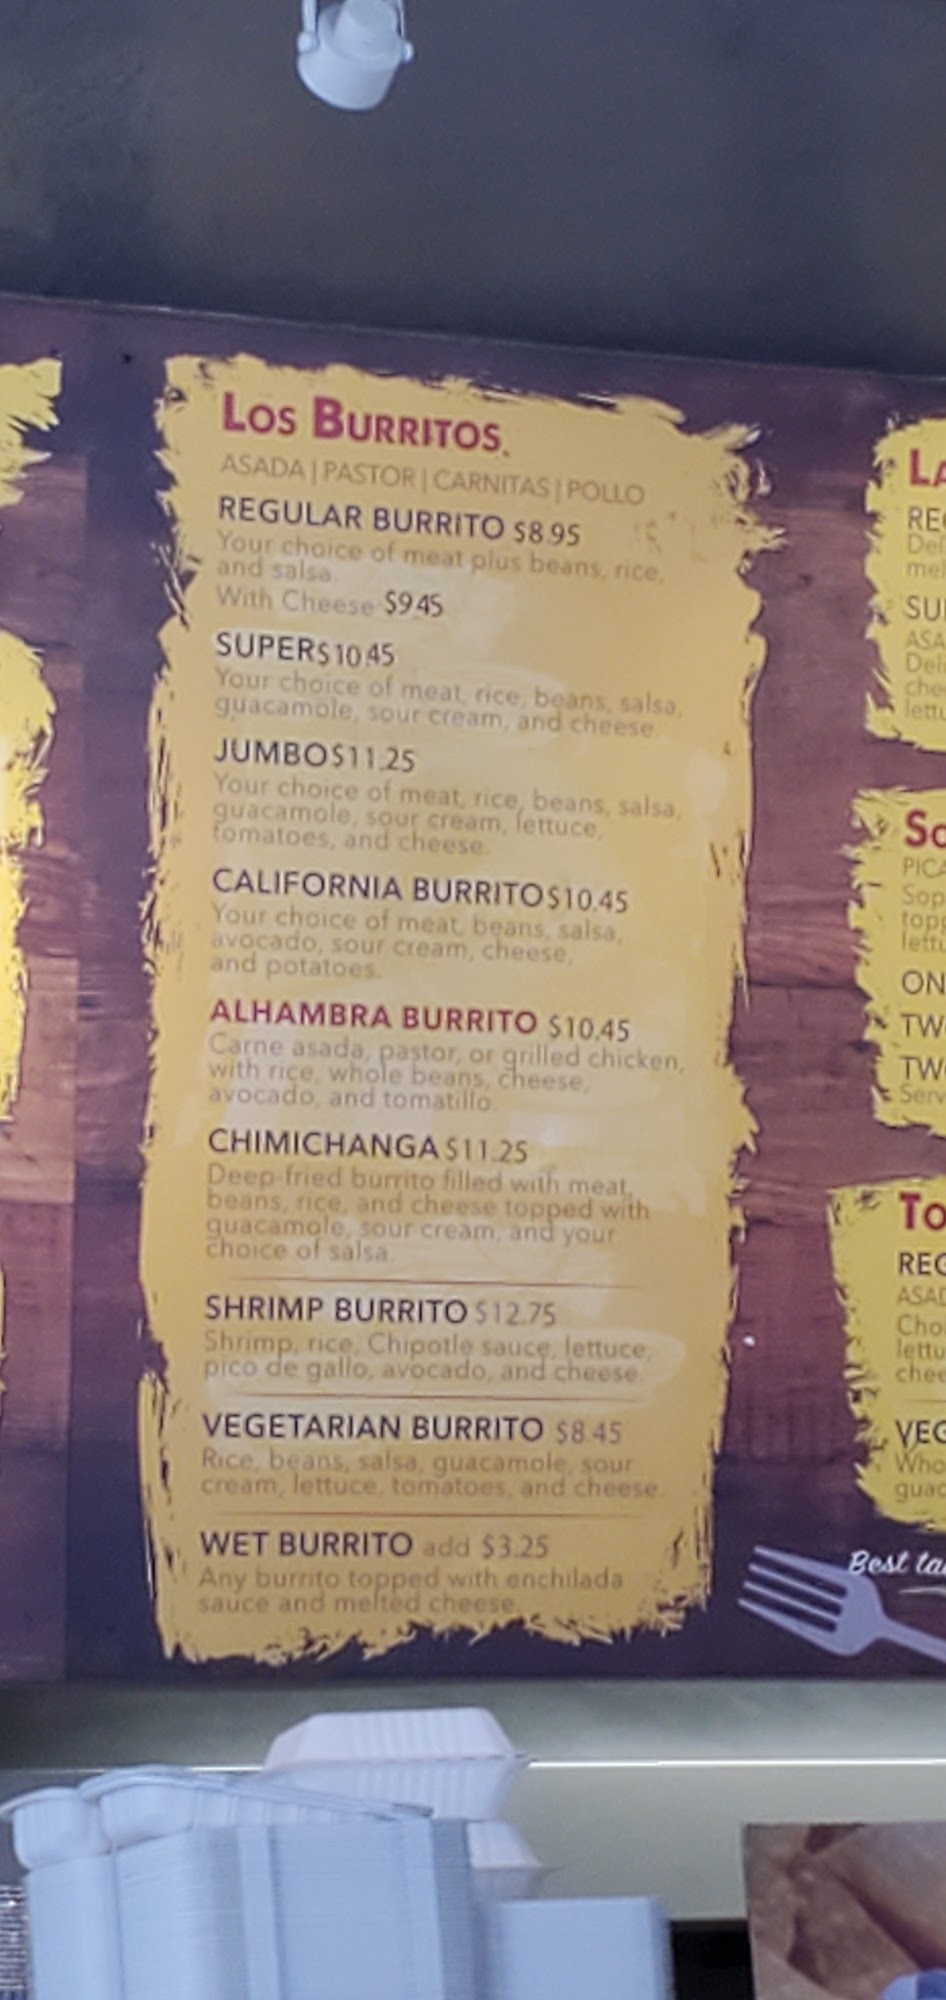 LOS BURRITOS.
ASADA | PASTOR | CARNITAS | POLLO
REGULAR BURRITO $8.95
Your choice of meat plus beans, rice,
and salsa.
With Cheese $9.45
SUPER $10.45
Your choice of meat, rice, beans, salsa,
guacamole, sour cream, and cheese.
JUMBO $11.25
Your choice of meat, rice, beans, salsa,
guacamole, sour cream, lettuce,
tomatoes, and cheese.
CALIFORNIA BURRITO $10.45
Your choice of meat, beans, salsa,
avocado, sour cream, cheese,
and potatoes.
ALHAMBRA BURRITO $10.45
Carne asada, pastor, or grilled chicken,
with rice, whole beans, cheese,
avocado, and tomatillo.
CHIMICHANGA $11.25
Deep-fried burrito filled with meat,
beans, rice, and cheese topped with
guacamole, sour cream, and your
choice of salsa.
SHRIMP BURRITO $12.75
Shrimp, rice, Chipotle sauce, lettuce,
pico de gallo, avocado, and cheese.
VEGETARIAN BURRITO $8.45
Rice, beans, salsa, guacamole, sour
cream, lettuce, tomatoes, and cheese.
WET BURRITO add $3.25
Any burrito topped with enchilada
sauce and melted cheese.
ON
Best